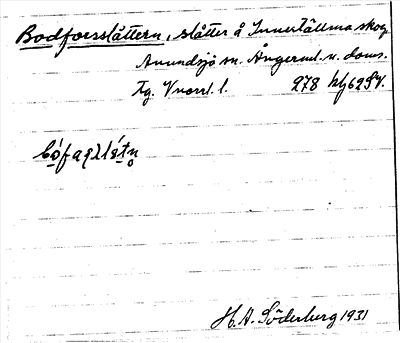 Bodforsslåttern, slåtter å Innertällma skog
Anundsjö sn. Ångerml. n. doms.
tg. Vnorrl. l. 278
H. A. Söderberg 1931